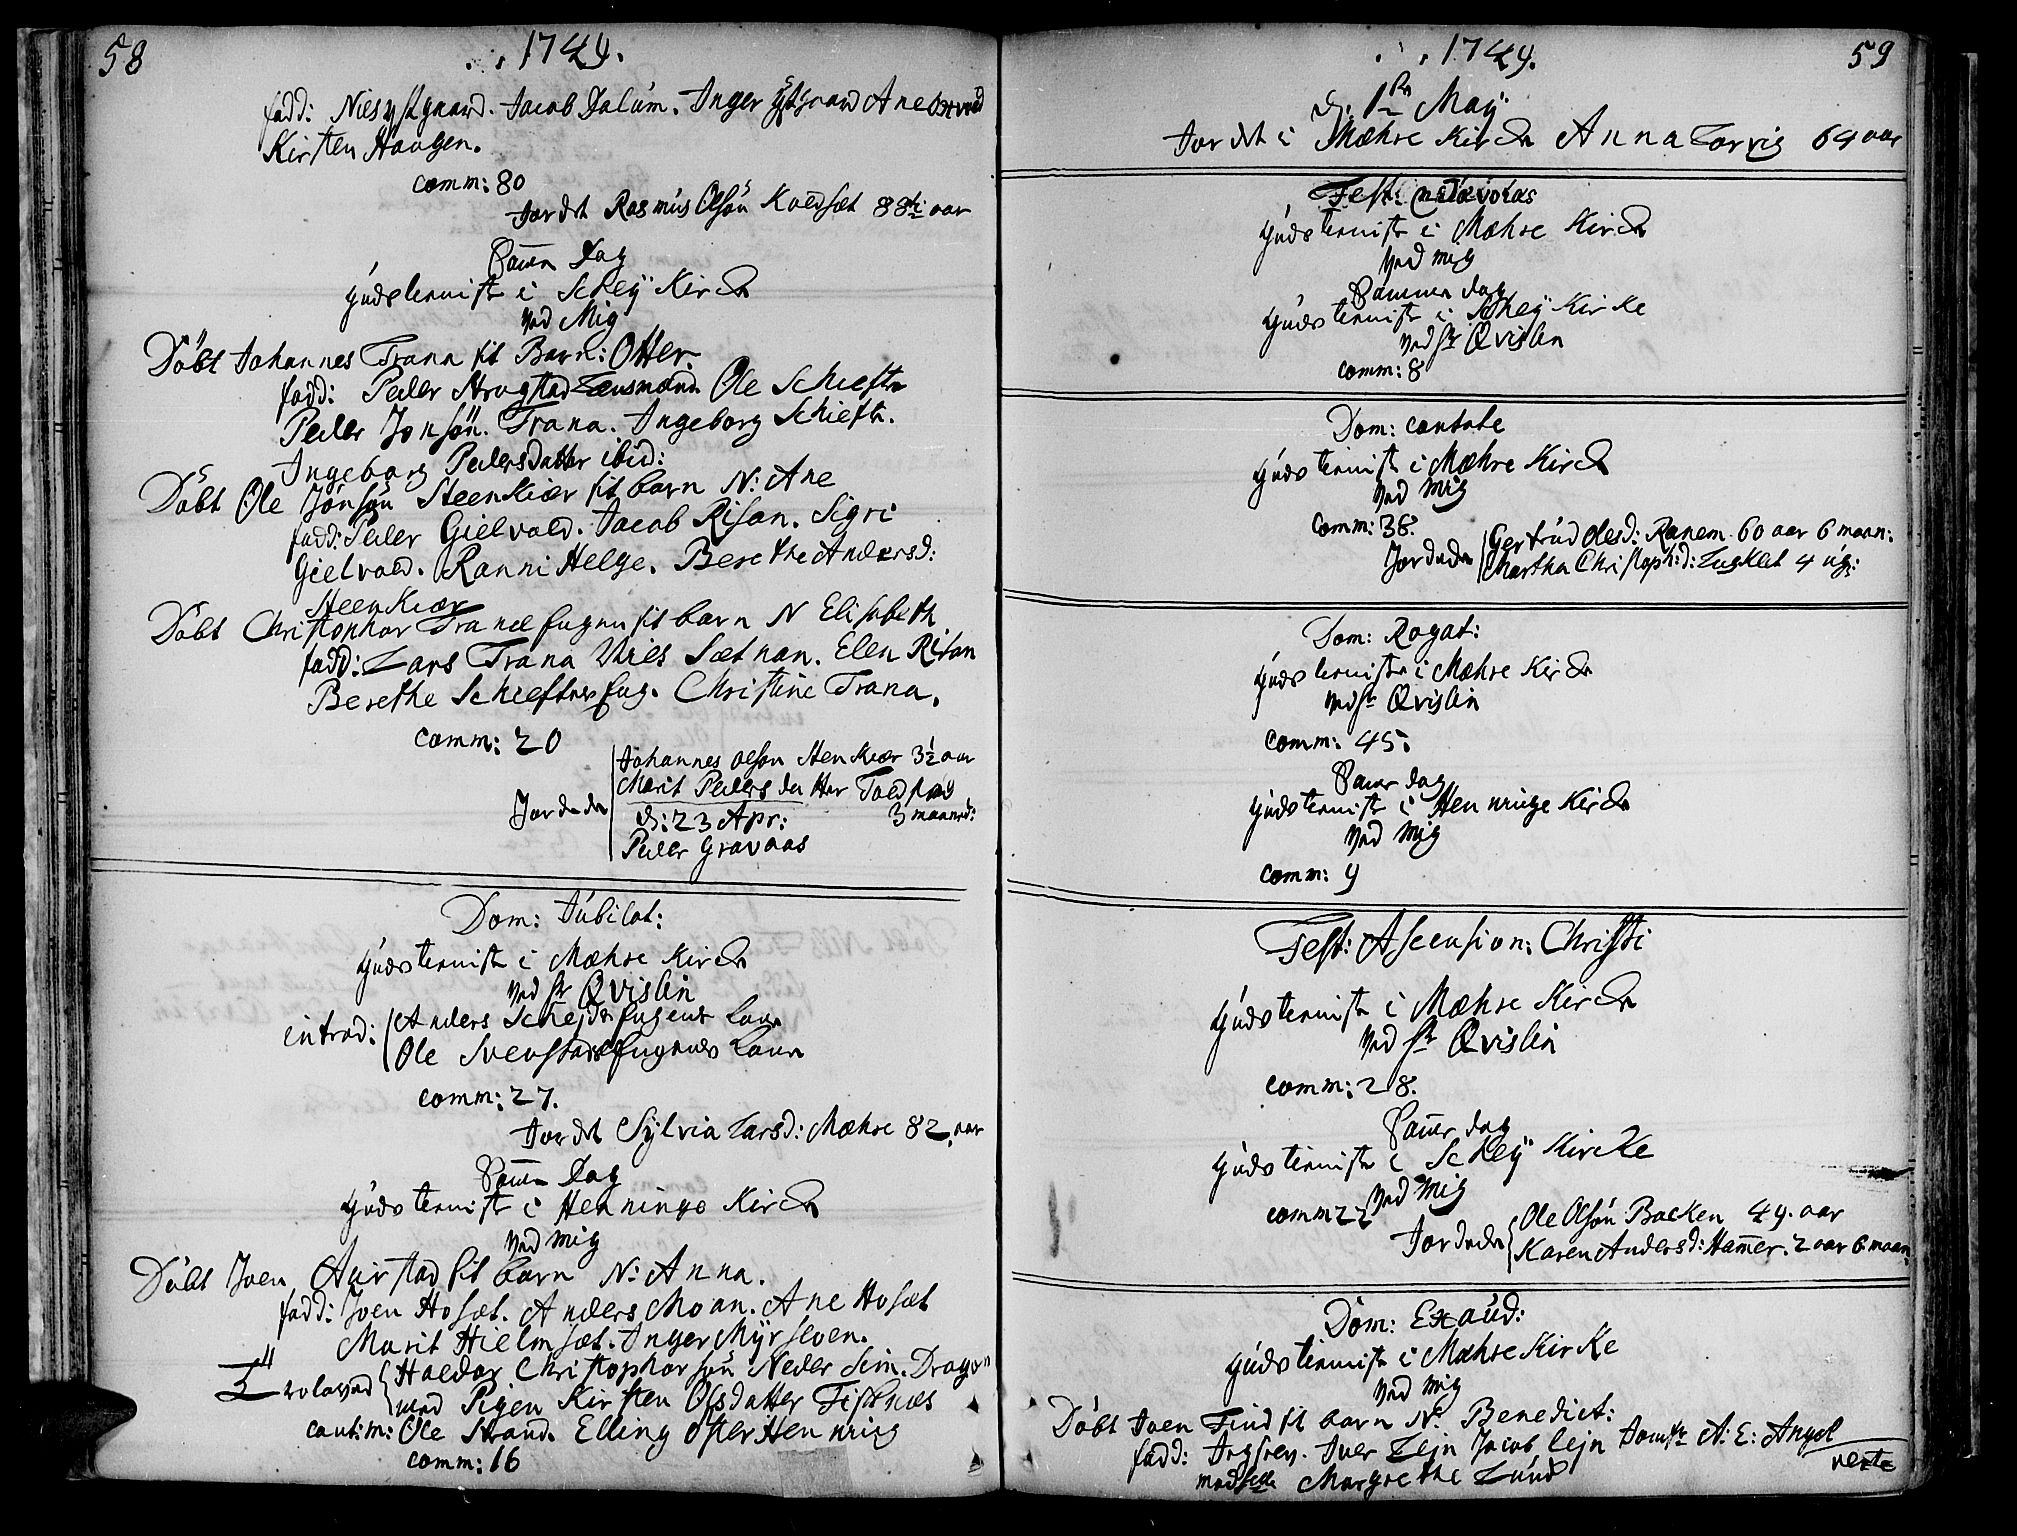 58
1749.
fadd: Nies ystgaard. Jacob Dalúm. Inger ystgaard Ane
Kirsten Haugen.
comm: 80
Jordet Rasmús Olsøn Koldsæt 88 aar
Samme Dag
gúdstienniste i Schey Kirche
Ved Mig
Døbt Johannes Trana sit Barn: Otter
fadd: Peder Strugstad Lensmand Ole Schieftr
Peder Jonsøn. Trana. Ingeborg Schieftr.
Ingeborg Pedersdatter ibid:
Døbt Ole Jonsøn Steenkiær sit barn N: Ane
fadd: Peder Gielvold. Jacob Risan. Sigri
Gielvold. Ranni Helge. Berethe Andersd:
Steenkiær
Døbt Christophor Tranæ sit barn N Elisabeth
fadd: Lars Trana Nies Sætnan. Elen Risan
Berethe Schieftres Christine Trana.
comm: 20
Jordede Johannes olsøn Stenkiær 3½ aar
Marit Pedersdatter
3 maaned:
d: 23 Apr:
Peder Gravaas
Dom: Júbilat:
gúdstienniste i Mæhre Kirche
Ved Sr Qvislin
introd: Anders Kone
Ole Svenstad Kone
comm: 27.
Jordet Sylvia Larsd: Mæhre 82 aar
Samme Dag
gúdstienniste i Henninge Kirche
Ved mig
Døbt Joen Aurstad sit barn N: Anna.
fadd: Joen Hosæt. Anders Moan. Ane Hosæt
Marit Hielmsæt. Inger Myrseven.
Troloved Haldor Christophersøn Neder Sem. Dragon
med Pigen Kirsten Olsdatter Fisknæs
cautim: Ole Strand. Elling Henning
comm: 16
59
1749.
d: 1ste May
Jordet i Mæhre Kirche Anna Lorvig 69 aar
Fest:
gúdstienniste i Mæhre Kirche
Ved mig
Sammen dag
gúdstienniste i Schey Kirke
ved Sr Qvislin
comm: 8
Dom: cantate
gúdstienniste i Mæhre Kirche
Ved mig
comm: 38.
Jordede Gertrúd Olesd: Ranem 60 aar 6 maan:
Martha Christoph:d: 4 úg:
Dom: Rogat:
gúdstienniste i Mæhre Kirche
Ved Sr Qvislin
comm: 45.
Samme dag
gúdstienniste i Henninge Kirche
Ved mig
comm: 9
Fest: Ascension: Christi
gúdstienniste i Mæhre Kirche
Ved Sr Qvislin
comm: 28.
Samme dag
gúdstienniste i Schey Kircke
Ved mig
comm 22
Jordede Ole Olsøn Backen 49. aar
Karen Andersd: Hammer. 2 aar 6 maan:
Dom: Exaúd:
gúdstienniste i Mæhre Kirke
Ved mig
Døbt Joen Find sit barn N: Benedict:
fadd: Iver Lejn Jacob Lejn Jomfr A: E: Angel
Margrethe Lúnd
verte